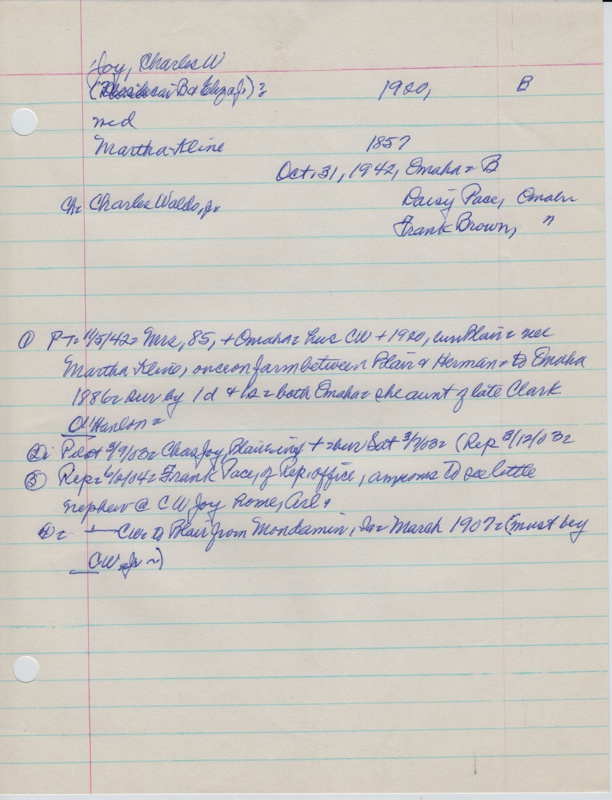 Joy, Charles W
( Bo Eliza Jo)? 1920, B
md
Martha Kline 1857
Oct. 31, 1942, Omaha = B
Ch = Charles Waldo, jr. Daisy Pace, Omaha
Frank Brown, "
① PT = 11/5/42 = Mrs, 85, + Omaha = hus CW + 1920, bur Blair = nee
Martha Kline, once on farm between Blair & Herman = to Omaha
1886 = sur by 1d & 1s = both Omaha = she aunt of late Clark
O'Hanlon =
② Pilot 3/9/03 = Chas Joy, Blair + = bur Sat 3/7/03 = (Rep 3/12/03 =
③ Rep = 6/2/04 = Frank Pace, of Rep. office, anxious to see little
nephew @ CW Joy home,
CW = to Blair from Mondamin, Ia = March 1907 = (must be
CW Jr ~)